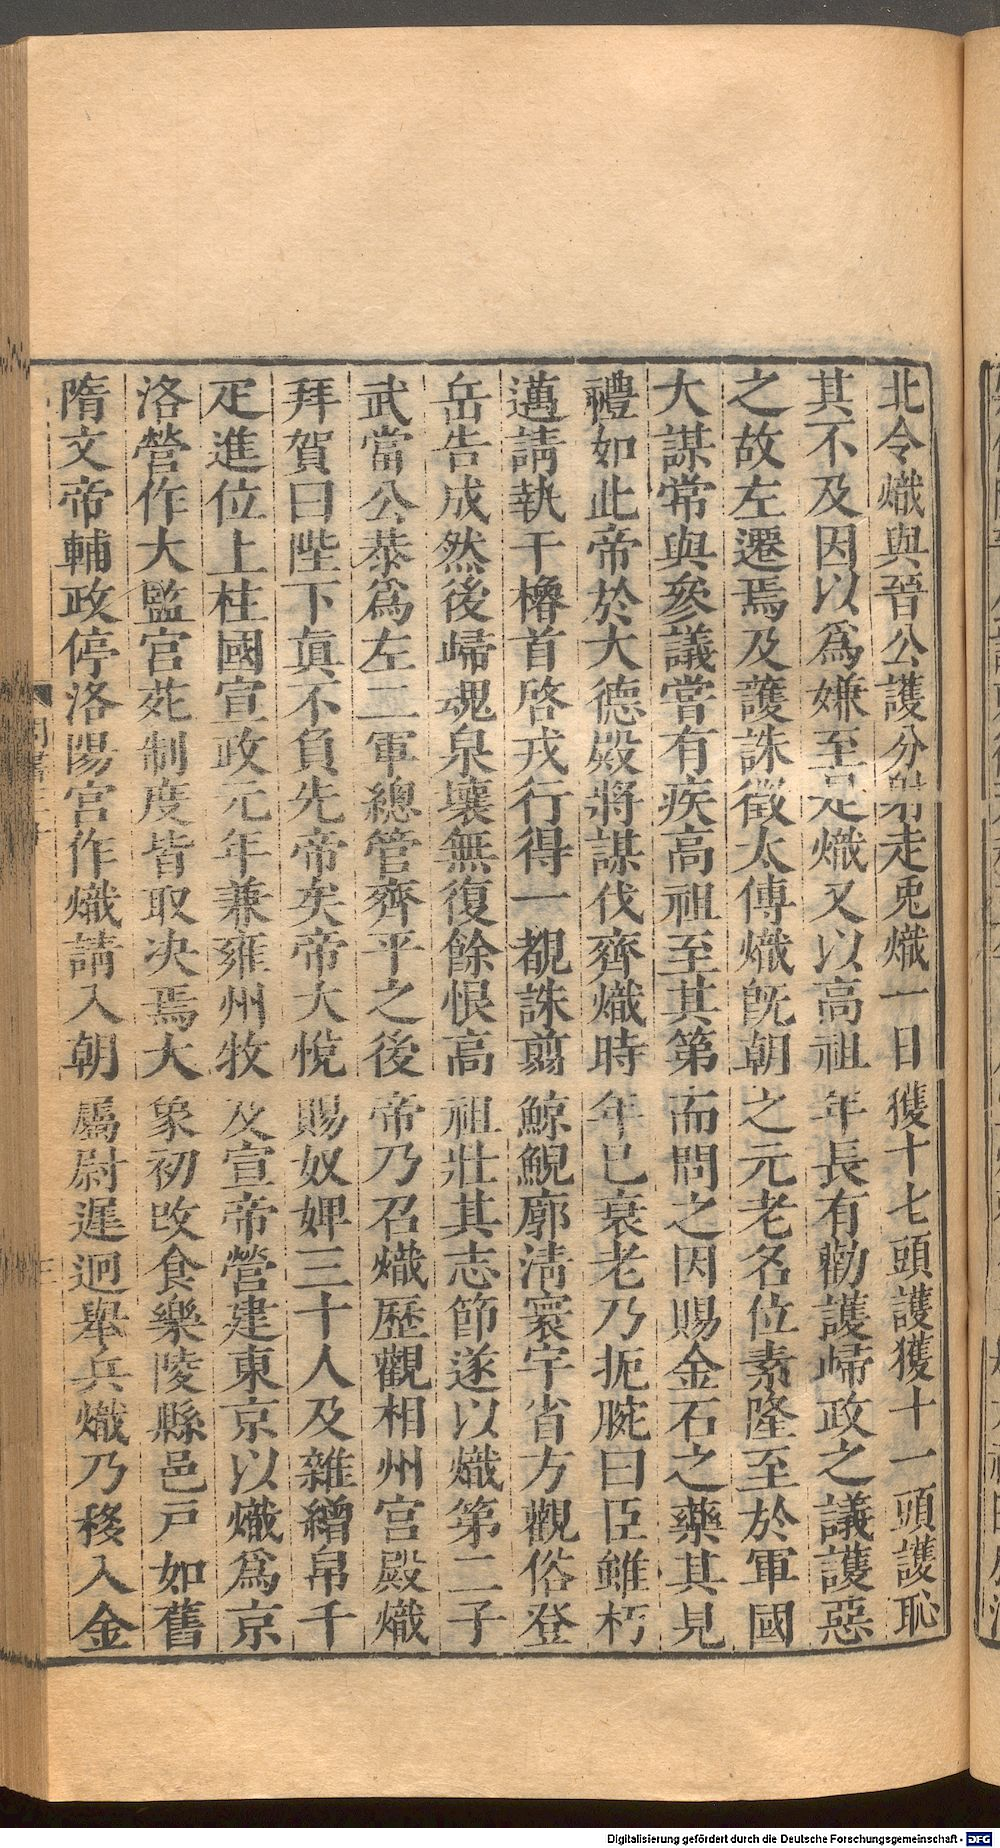 北令熾與晉公護分射走兎熾一日獲十七頭護獲十一頭護恥
其不及因以爲嫌至是熾又以高祖年長有勸護歸政之議護惡
之故左遷焉及護誅徵太傅熾旣朝之元老名位素隆至於軍國
大謀常與參議嘗有疾高祖至其第而問之因賜金石之藥其見
禮如此帝於大德殿將謀伐齊熾時年已衰老乃扼腕曰臣雖朽
邁請執干櫓首啓戎行得一覩誅翦鯨鯢廓淸寰宇省方觀俗登
岳告成然後歸魂泉壤無復餘恨高祖壯其志節遂以熾第二子
武當公恭爲左二軍總管齊平之後帝乃召熾歷觀相州宮殿熾
拜賀曰陛下眞不負先帝矣帝大悅賜奴婢三十人及雜繒帛千
疋進位上柱國宣政元年兼雍州牧及宣帝營建東京以熾爲京
洛營作大監宮苑制度皆取決焉大象初改食樂陵縣邑戸如舊
隋文帝輔政停洛陽宮作熾請入朝屬尉遲迥舉兵熾乃移入金
Digitalisierung gefördert durch die Deutsche Forschungsgemeinschaft - DFG